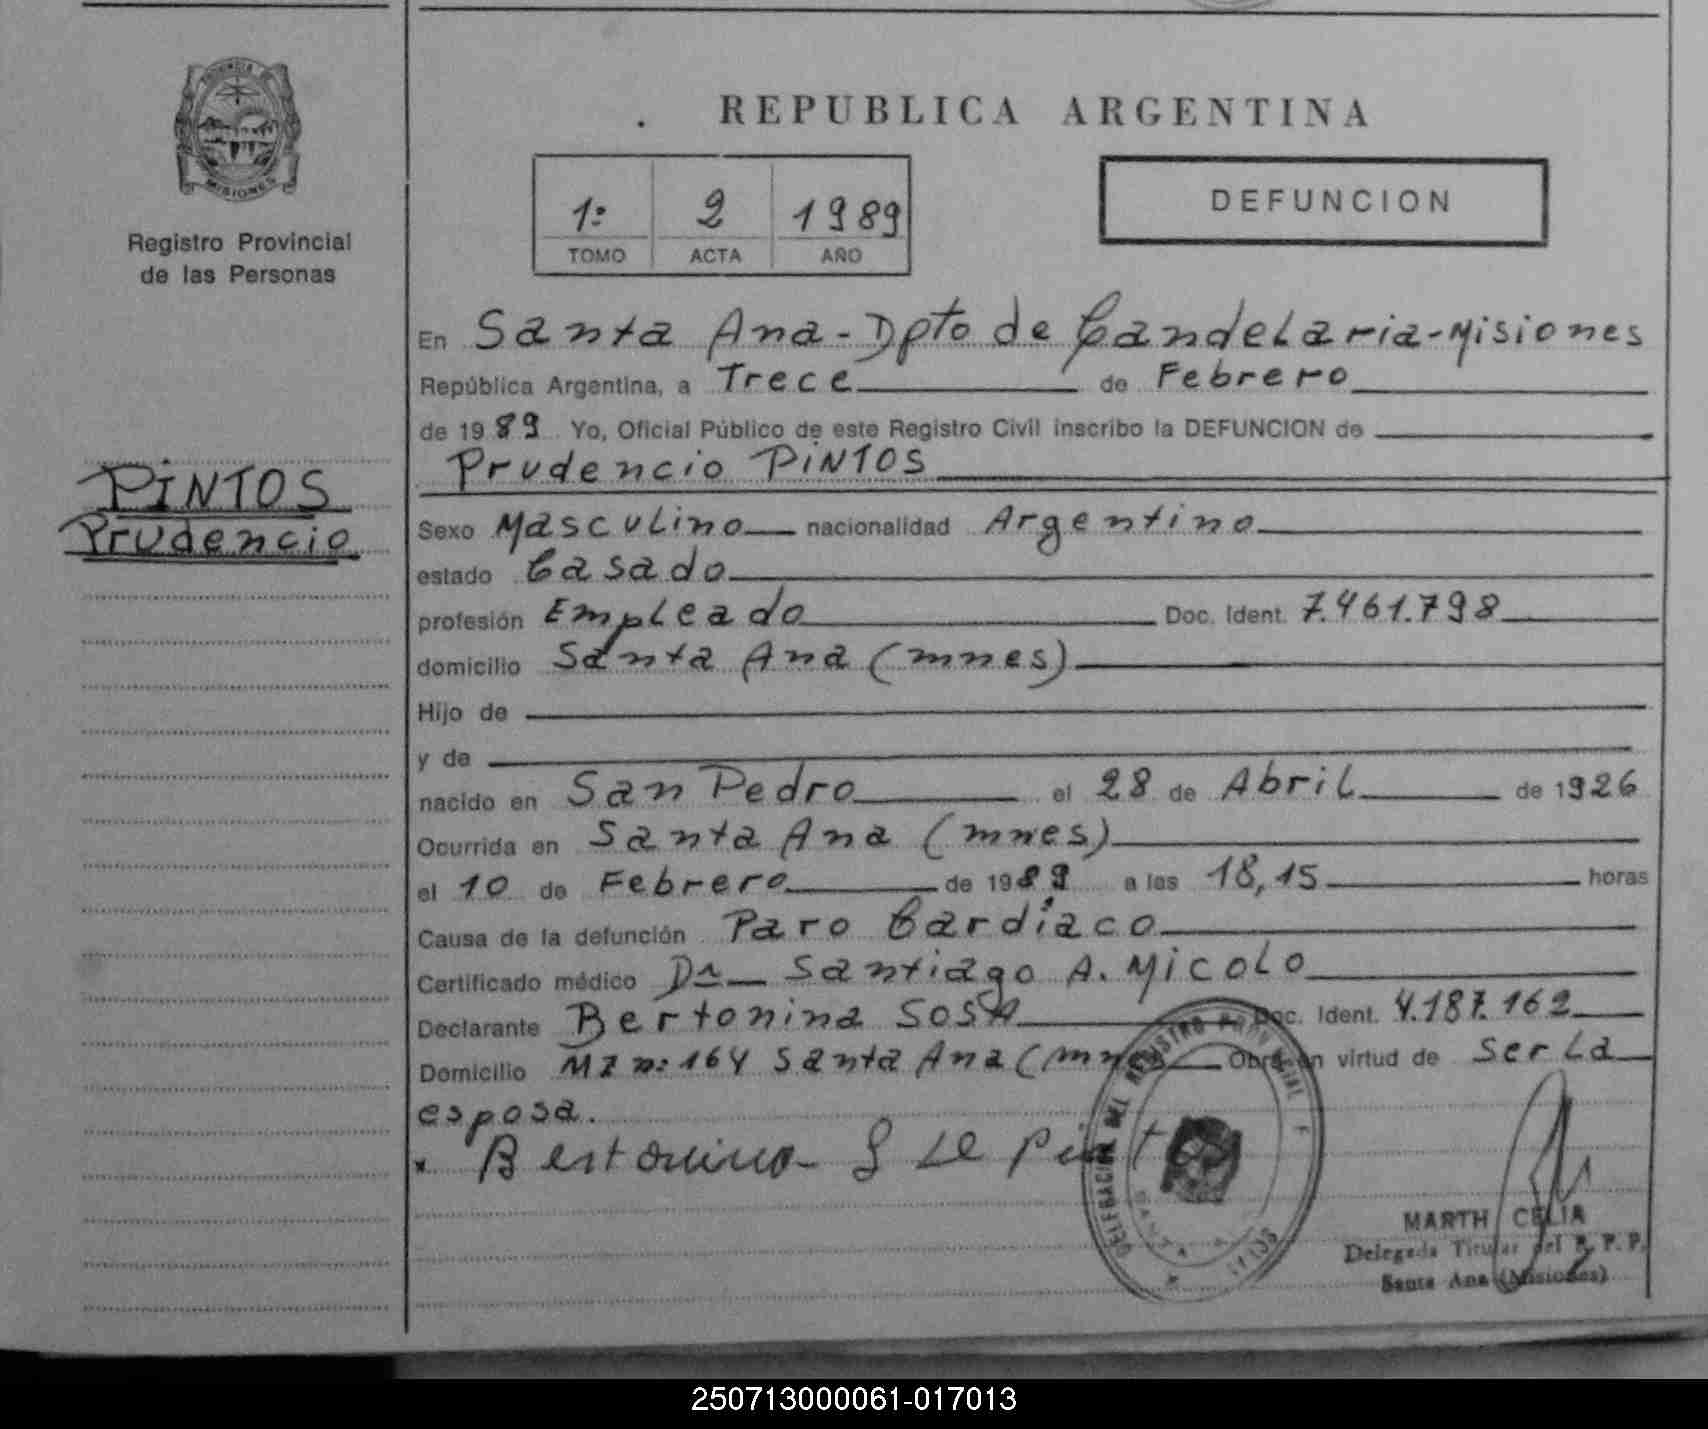 PROVINCIA DE
MISIONES
Registro Provincial
de las Personas
PINTOS
Prudencio
REPUBLICA ARGENTINA
1º 2 1989
TOMO ACTA AÑO
DEFUNCION
En Santa Ana - Dpto de Candelaria - Misiones
República Argentina, a Trece de Febrero
de 1989 Yo, Oficial Público de este Registro Civil inscribo la DEFUNCION de
Prudencio PINTOS
Sexo Masculino nacionalidad Argentino
estado Casado
profesión Empleado Doc. Ident. 7.461.798
domicilio Santa Ana (mnes)
Hijo de
y de
nacido en San Pedro el 28 de Abril de 1926
Ocurrida en Santa Ana (mnes)
el 10 de Febrero de 1989 a las 18,15 horas
Causa de la defunción Paro Cardíaco
Certificado médico Dr Santiago A. Micolo
Declarante Bertonina SOSA Doc. Ident. 4.187.162
Domicilio MZ nº 164 Santa Ana (mnes Obra en virtud de ser La
esposa.
DELEGACION DEL REGISTRO PROVINCIAL
SANTA
MARTH CELIA
Delegada Titular del R. P. P.
Santa Ana (Misiones)
250713000061-017013